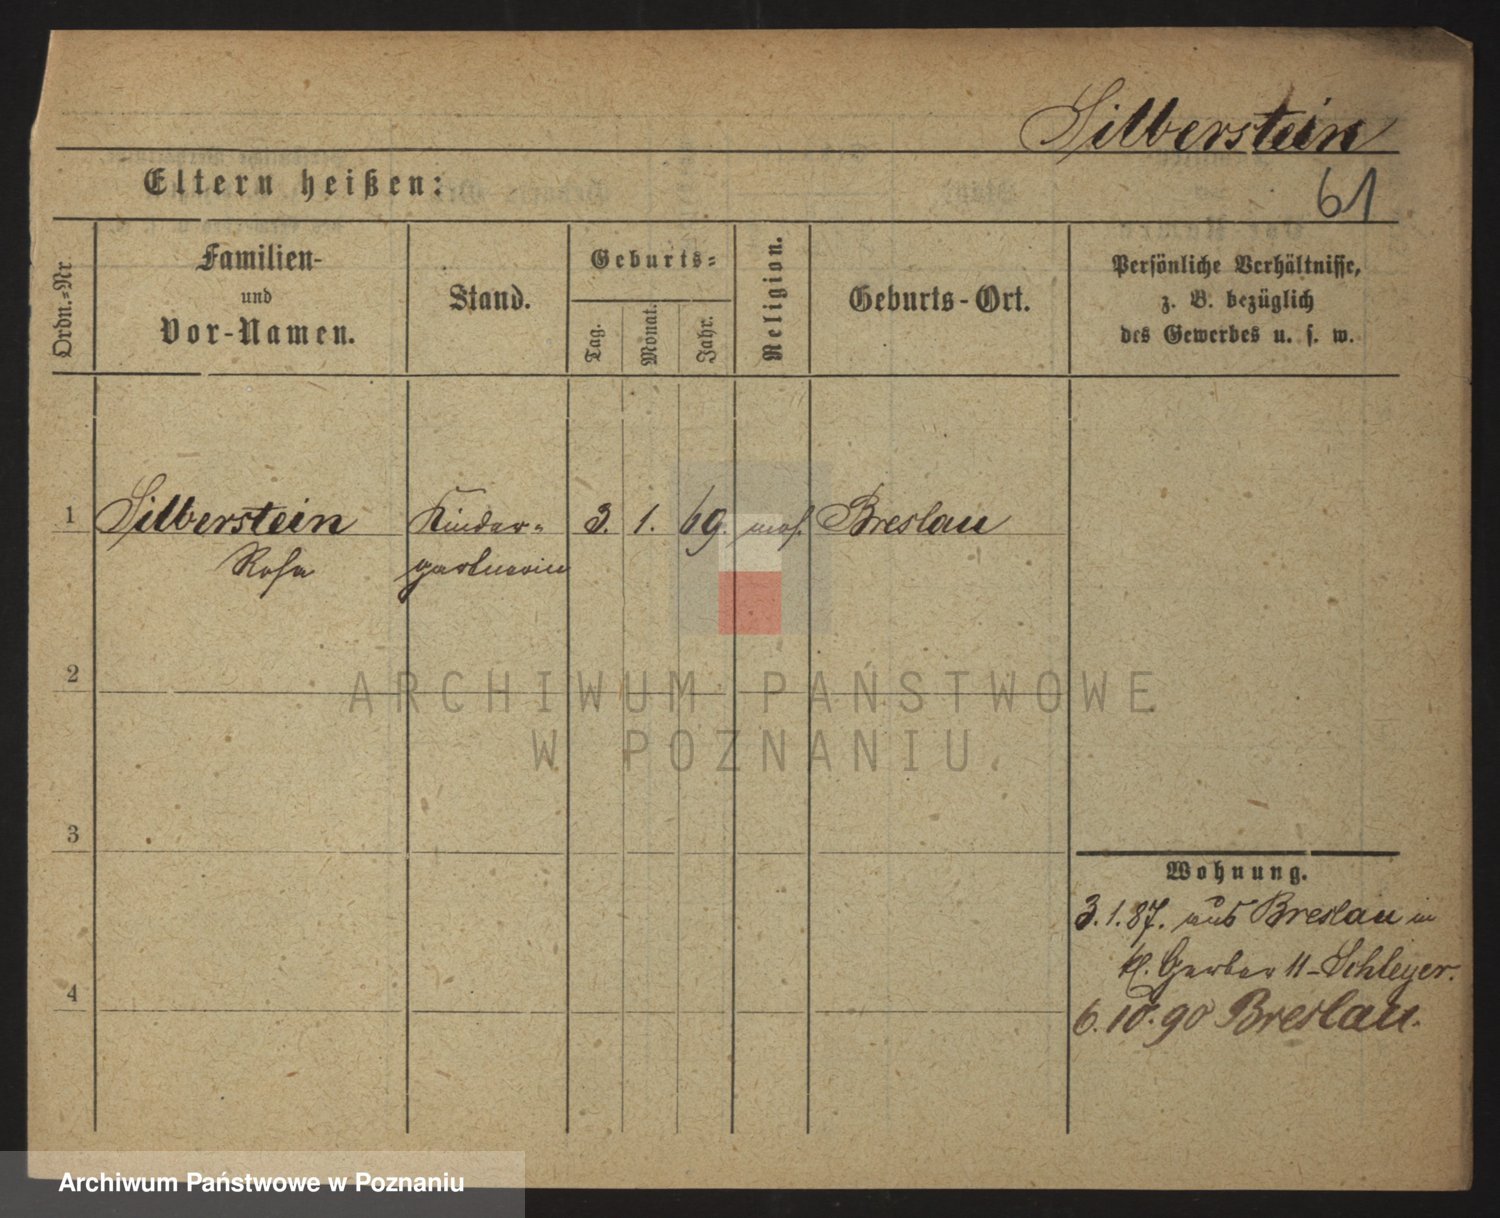 Silberstein
Eltern heißen:
61
Ordn.-Nr.
Familien-
und
Vor-Namen.
Stand.
Geburts-
Tag.
Monat.
Jahr.
Religion.
Geburts-Ort.
Persönliche Verhältnisse,
z. B. bezüglich
des Gewerbes u. s. w.
1 Silberstein Kinder- 3. 1. 69. mos. Breslau
Rosa gärtnerin
2
ARCHIWUM PAŃSTWOWE
W POZNANIU
3
Wohnung.
3.1.87. aus Breslau in
kl. Gerber 11 - Schleyer.
4
6.10.90 Breslau.
Archiwum Państwowe w Poznaniu